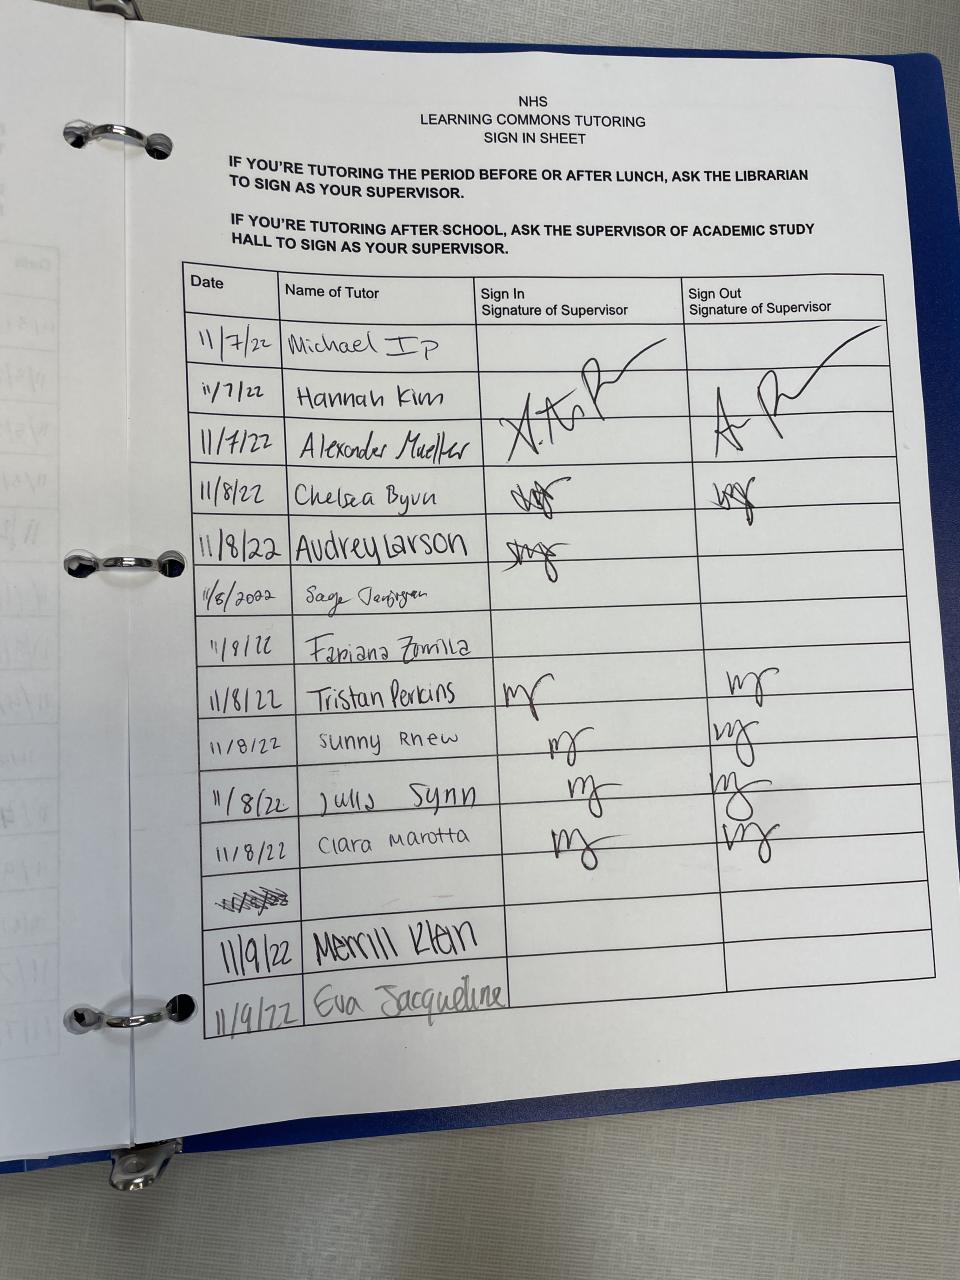 NHS
LEARNING COMMONS TUTORING
SIGN IN SHEET
IF YOU'RE TUTORING THE PERIOD BEFORE OR AFTER LUNCH, ASK THE LIBRARIAN
TO SIGN AS YOUR SUPERVISOR.
IF YOU'RE TUTORING AFTER SCHOOL, ASK THE SUPERVISOR OF ACADEMIC STUDY
HALL TO SIGN AS YOUR SUPERVISOR.
Date Name of Tutor Sign In Sign Out
Signature of Supervisor Signature of Supervisor
11/7/22 Michael Ip
11/7/22 Hannah Kim
11/7/22 Alexander Mueller
11/8/22 Chelsea Byun
11/8/22 Audrey Larson
11/8/2022 Sage
11/8/22 Fabiana
11/8/22 Tristan Perkins
11/8/22 Sunny Rhew
11/8/22 Julia Synn
11/8/22 Clara Marotta
11/9/22 Merrill Klein
11/9/22 Eva Jacqueline